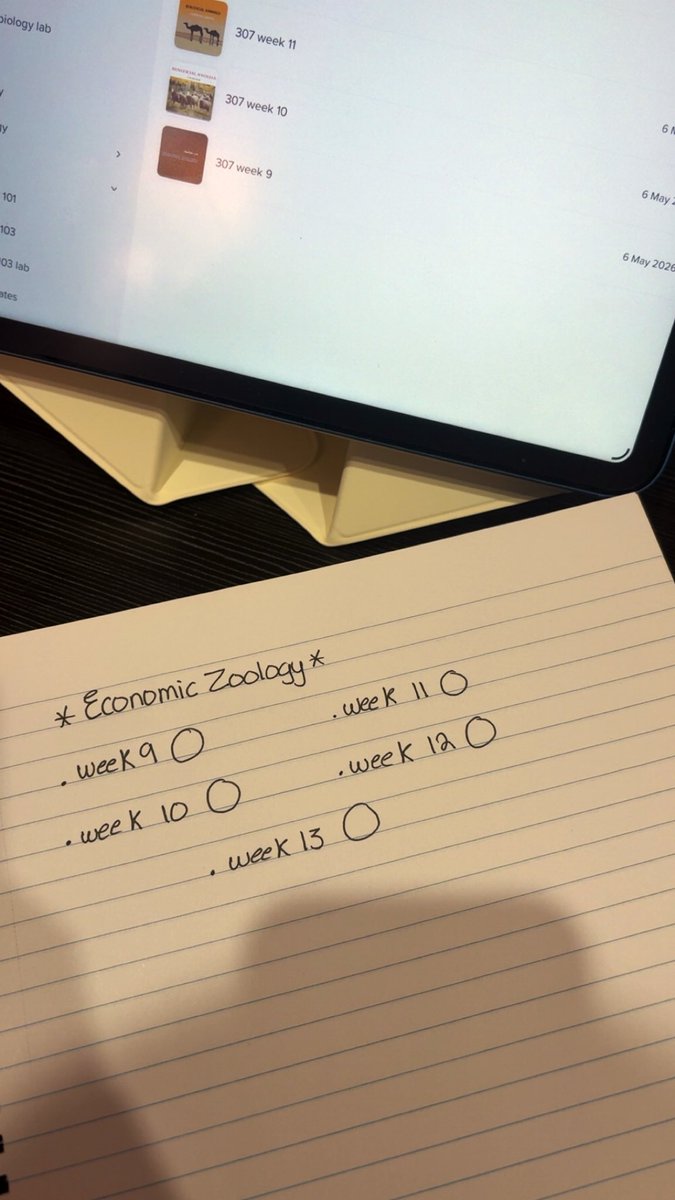 biology lab
307 week 11
307 week 10
307 week 9
101
103
03 lab
ates
6 May 2
6 May 2026
* Economic Zoology *
. week 9
. week 11
. week 10
. week 12
. week 13